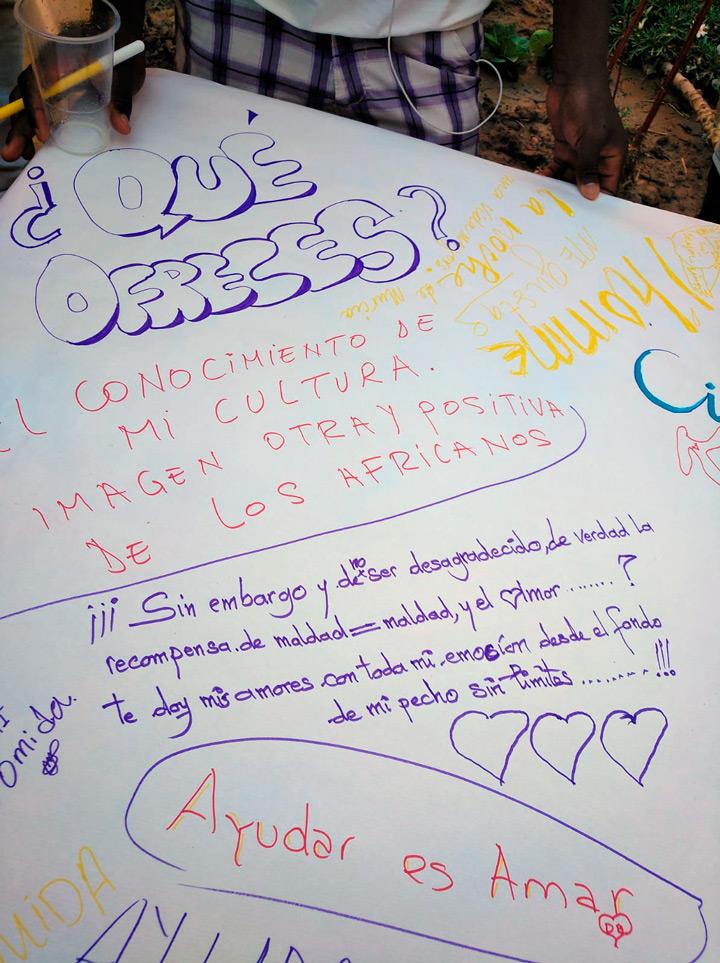 ¿QUÉ
OFRECES?
la noche de Murcia
ME gusta
l'homme
EL CONOCIMIENTO DE
MI CULTURA.
IMAGEN OTRA Y POSITIVA
DE LOS AFRICANOS
¡¡¡ Sin embargo y de no ser desagradecido, de verdad la
recompensa de maldad = maldad, y el Amor ....... ?
te doy mis amores con toda mi emosion desde el fondo
de mi pecho sin limites ........ !!!
omida.
Ayudar es Amar
MIDA